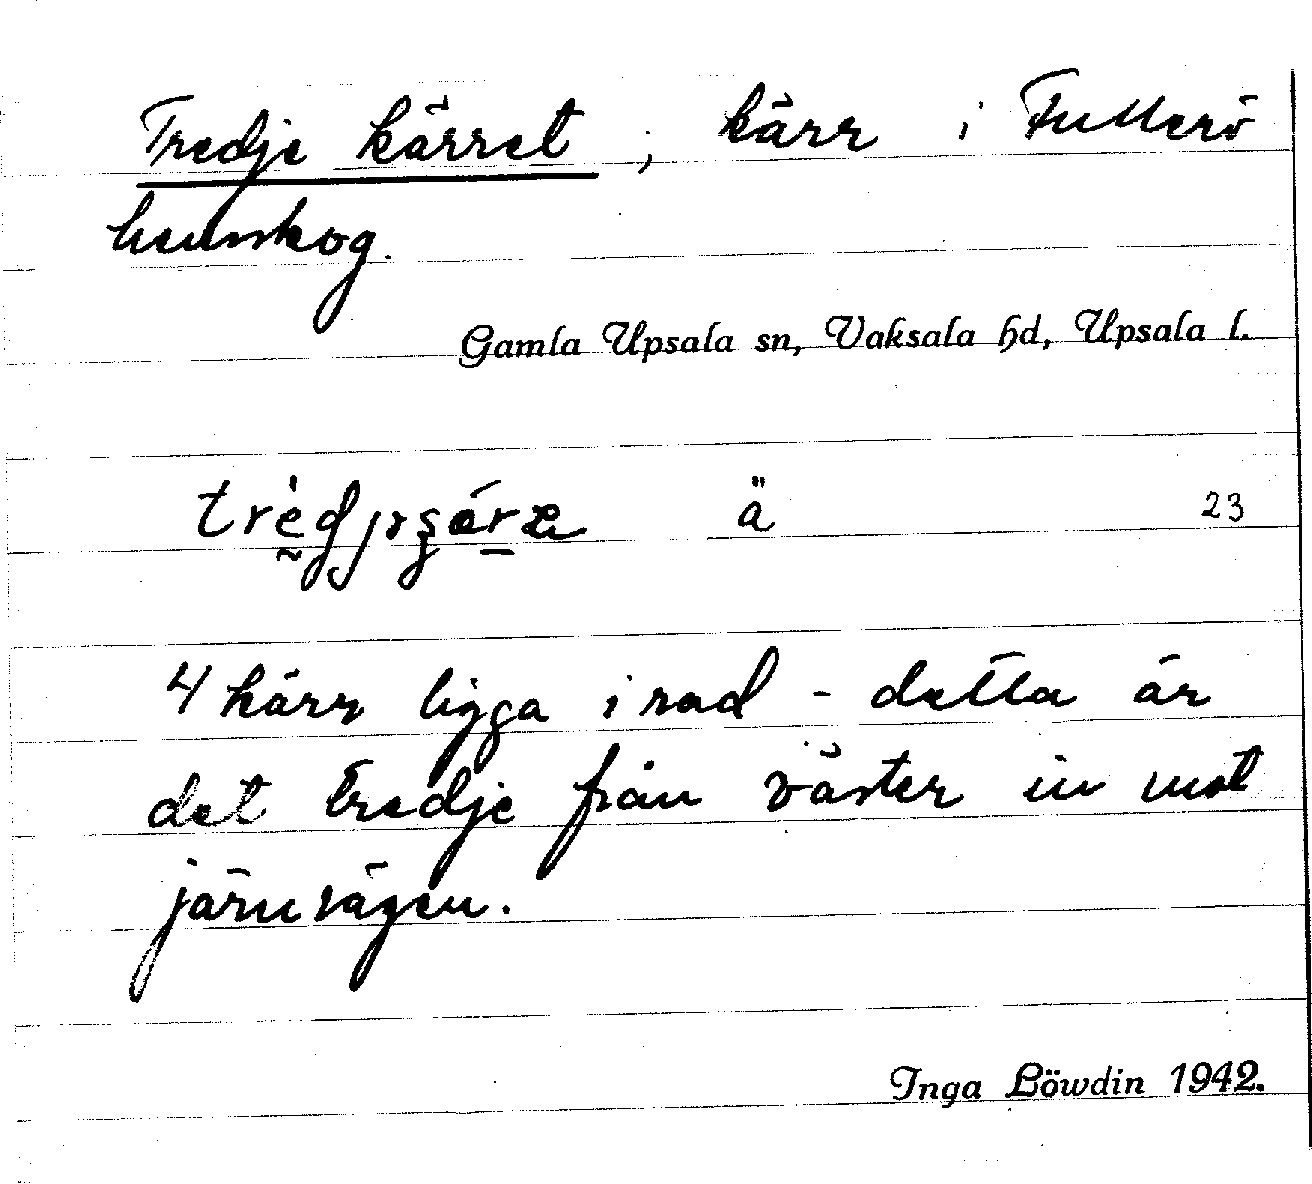 Tredje kärret, kärr i Fullerö
hemskog.
Gamla Upsala sn, Vaksala hd, Upsala l.
ä 23
4 kärr ligga i rad - detta är
det tredje från väster in mot
järnvägen.
Inga Löwdin 1942.